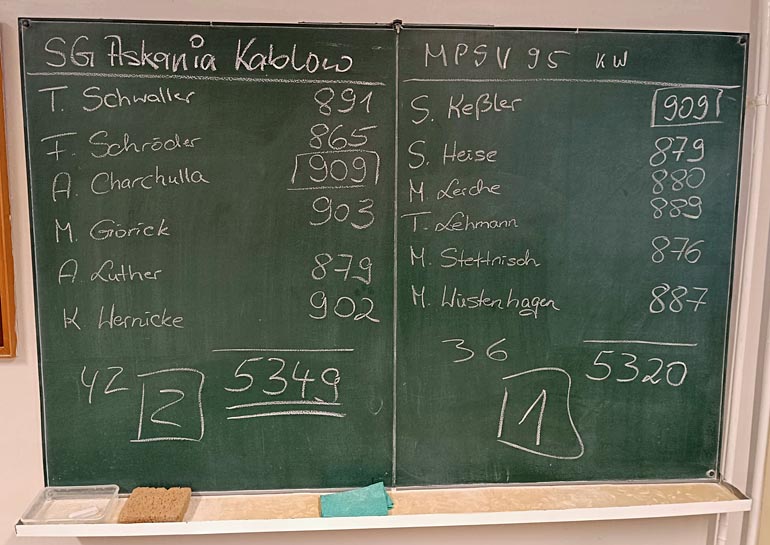 SG Askania Kablow
T. Schwaller 891
F. Schröder 865
A. Charchulla 909
M. Görick 903
A. Luther 879
K Wernicke 902
5349
42 2
MPSV 95 KW
S. Keßler 909
S. Heise 879
M. Lerche 880
T. Lehmann 889
M. Stettnisch 876
M. Wüstenhagen 887
36 5320
1